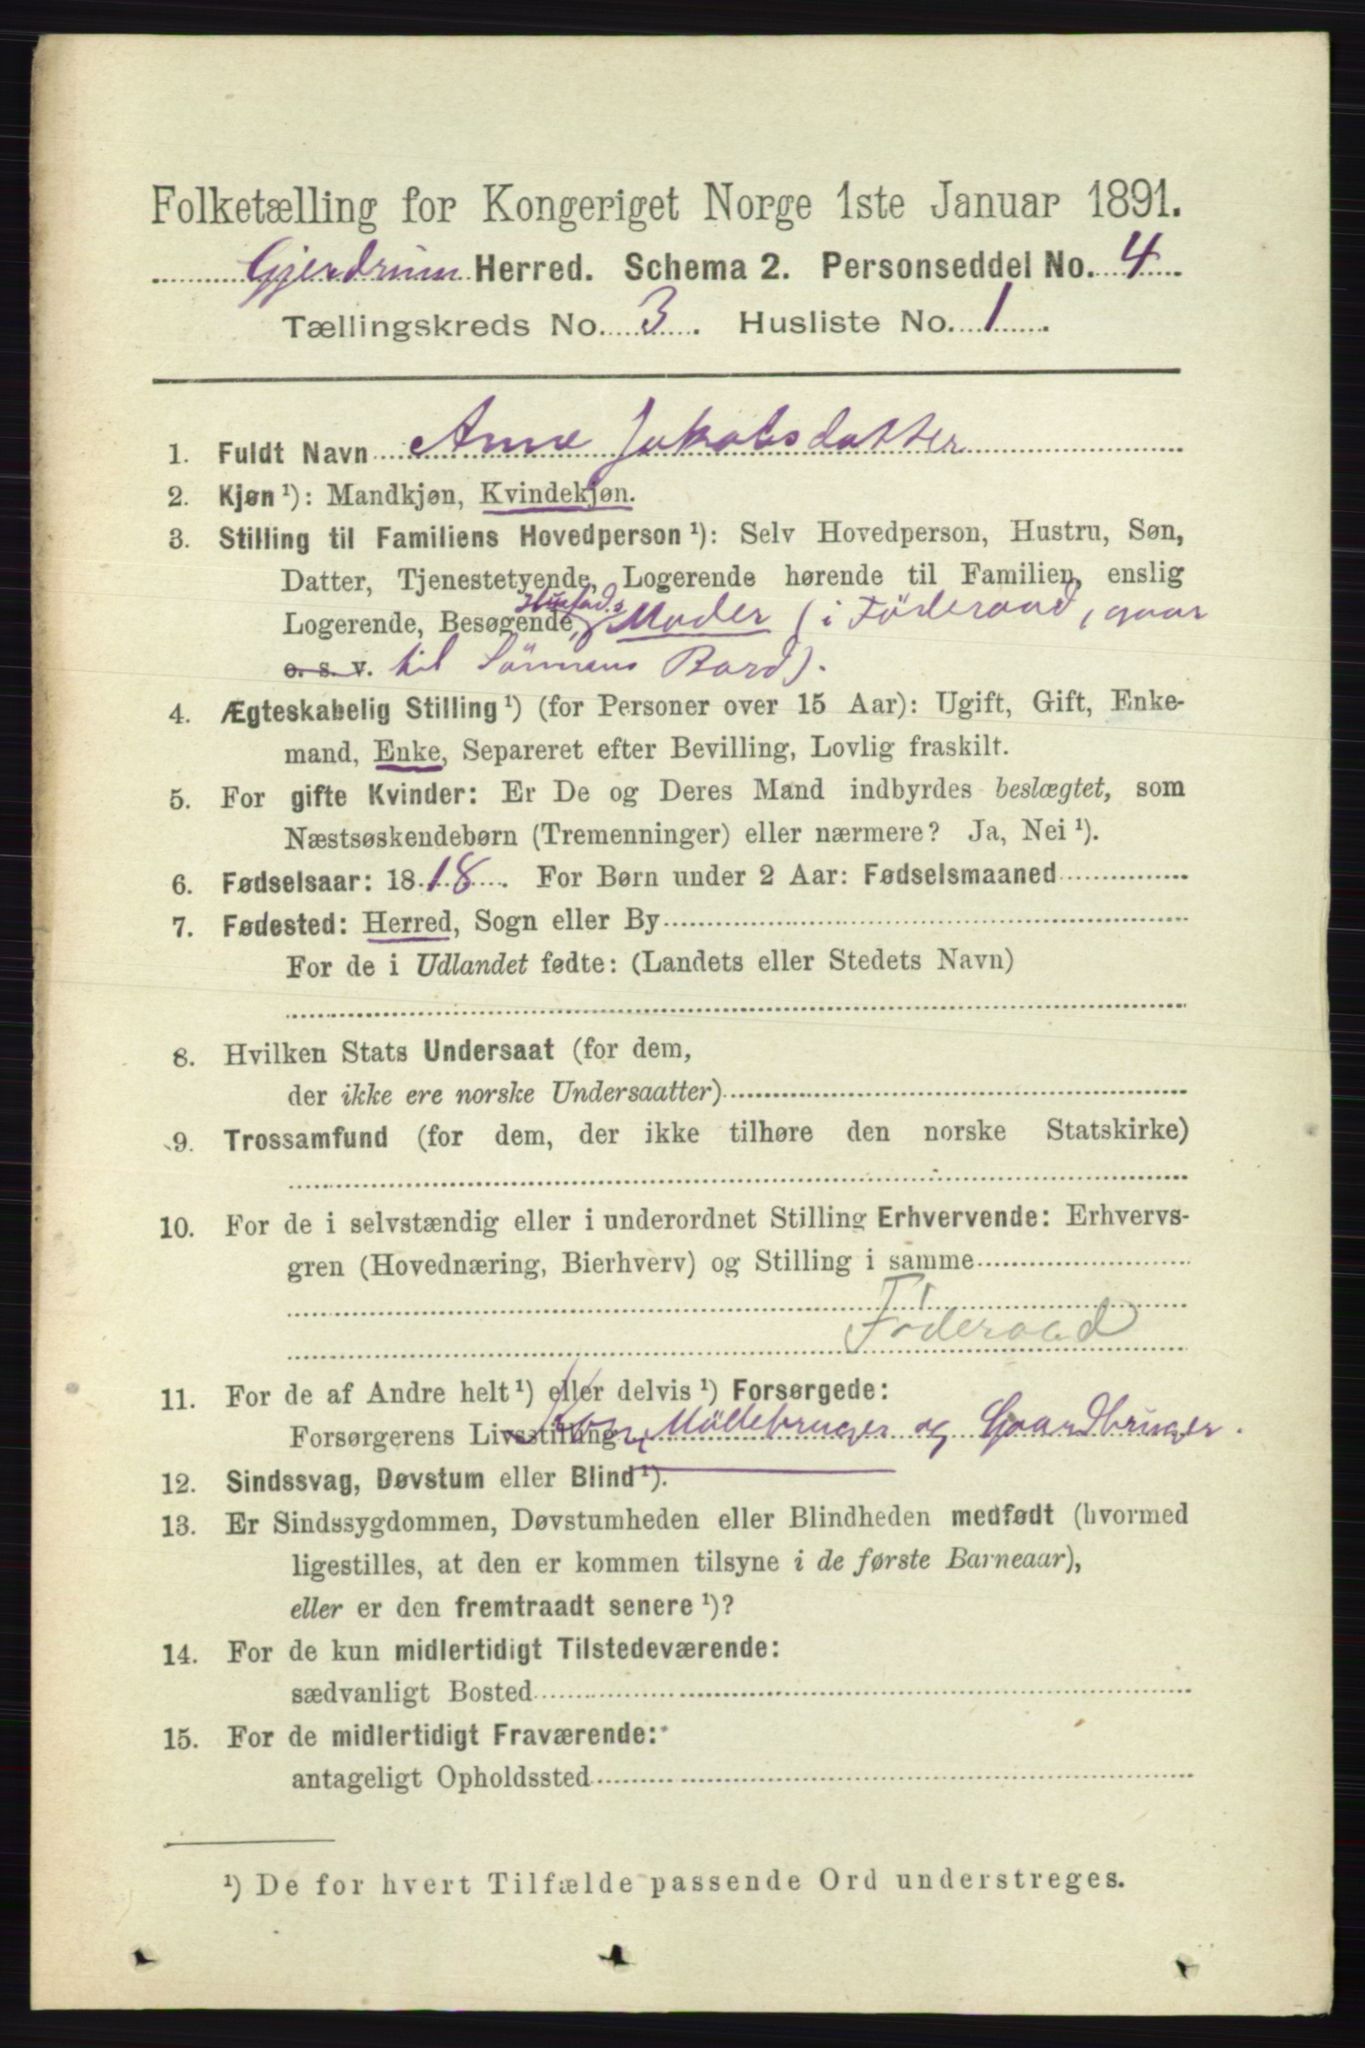 Folketælling for Kongeriget Norge 1ste Januar 1891.
Gjerdrum Herred. Schema 2. Personseddel No. 4
Tællingskreds No. 3. Husliste No. 1.
1. Fuldt Navn Anne Jakobsdatter
2. Kjøn ¹): Mandkjøn, Kvindekjøn.
3. Stilling til Familiens Hovedperson ¹): Selv Hovedperson, Hustru, Søn,
Datter, Tjenestetyende, Logerende hørende til Familien, enslig
Husfad.s
Logerende, Besøgende, Moder (i Föderaad, gaar
o. s. v. til Sönnens Bord).
4. Ægteskabelig Stilling ¹) (for Personer over 15 Aar): Ugift, Gift, Enke-
mand, Enke, Separeret efter Bevilling, Lovlig fraskilt.
5. For gifte Kvinder: Er De og Deres Mand indbyrdes beslægtet, som
Næstsøskendebørn (Tremenninger) eller nærmere? Ja, Nei ¹).
6. Fødselsaar: 1818. For Børn under 2 Aar: Fødselsmaaned
7. Fødested: Herred, Sogn eller By
For de i Udlandet fødte: (Landets eller Stedets Navn)
8. Hvilken Stats Undersaat (for dem,
der ikke ere norske Undersaatter)
9. Trossamfund (for dem, der ikke tilhøre den norske Statskirke)
10. For de i selvstændig eller i underordnet Stilling Erhvervende: Erhvervs-
gren (Hovednæring, Bierhverv) og Stilling i samme
Föderaad
11. For de af Andre helt ¹) eller delvis ¹) Forsørgede:
Forsørgerens Livsstilling Möllebruger og Gaardbruger.
12. Sindssvag, Døvstum eller Blind ¹).
13. Er Sindssygdommen, Døvstumheden eller Blindheden medfødt (hvormed
ligestilles, at den er kommen tilsyne i de første Barneaar),
eller er den fremtraadt senere ¹)?
14. For de kun midlertidigt Tilstedeværende:
sædvanligt Bosted
15. For de midlertidigt Fraværende:
antageligt Opholdssted
¹) De for hvert Tilfælde passende Ord understreges.